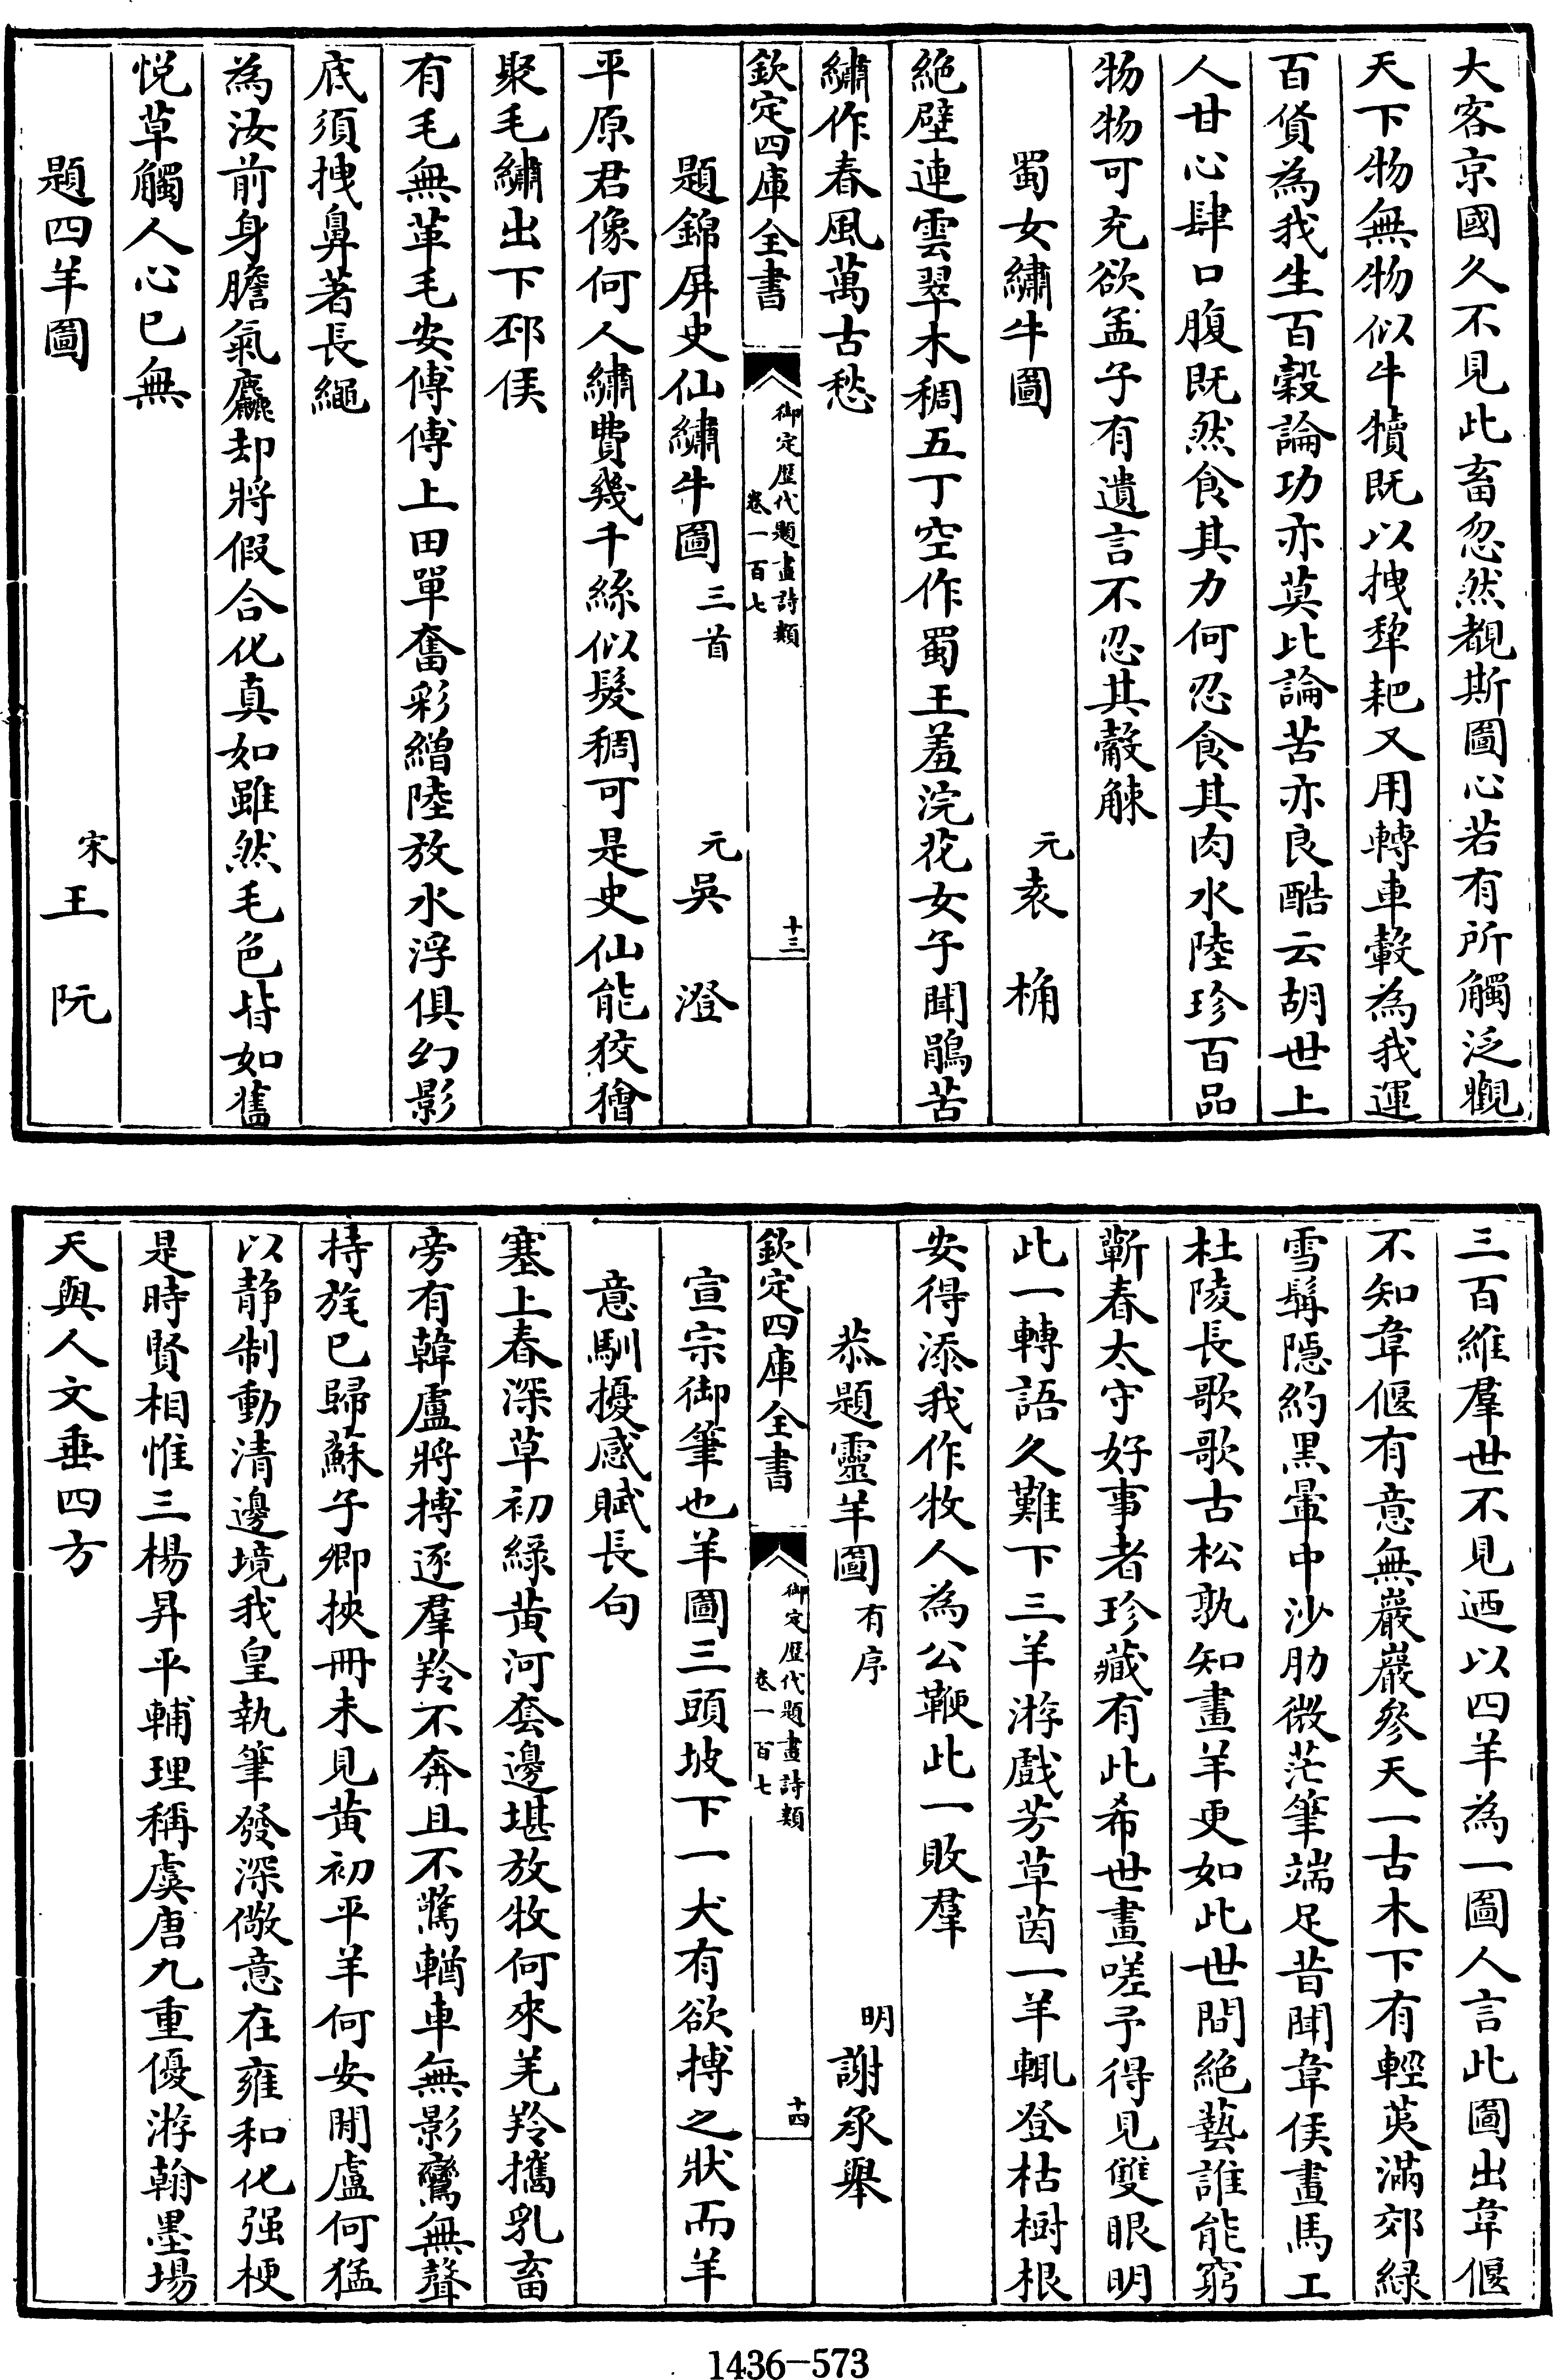 大客京國久不見此畜忽然覩斯圖心若有所觸泛觀
天下物無物似牛犢既以拽犂耙又用轉車轂為我運
百貨為我生百穀論功亦莫比論苦亦良酷云胡世上
人甘心肆口腹既然食其力何忍食其肉水陸珍百品
物物可充欲孟子有遺言不忍其觳觫
蜀女繡牛圖 元袁桷
絶壁連雲翠木稠五丁空作蜀王羞浣花女子聞鵑苦
繡作春風萬古愁
欽定四庫全書 御定歷代題畫詩類 卷一百七 十三
題錦屏史仙繡牛圖三首 元吳澄
平原君像何人繡費幾千絲似髮稠可是史仙能狡獪
聚毛繡出下邳侯
有毛無革毛安傅傅上田單奮彩繒陸放水浮俱幻影
底須拽鼻著長繩
為汝前身膽氣麤却將假合化真如雖然毛色皆如舊
悦草觸人心已無
題四羊圖 宋王阮
三百維羣世不見迺以四羊為一圖人言此圖出韋偃
不知韋偃有意無巖巖參天一古木下有輕荑滿郊緑
雪髯隱約黑暈中沙肋微茫筆端足昔聞韋侯畫馬工
杜陵長歌歌古松孰知畫羊更如此世間絶藝誰能窮
蘄春太守好事者珍藏有此希世畫嗟予得見雙眼明
此一轉語久難下三羊游戲芳草茵一羊輒登枯樹根
安得添我作牧人為公鞭此一敗羣
恭題靈羊圖有序 明謝承舉
欽定四庫全書 御定歷代題畫詩類 卷一百七 十四
宣宗御筆也羊圖三頭坡下一犬有欲搏之狀而羊
意馴擾感賦長句
塞上春深草初緑黄河套邊堪放牧何來羌羚攜乳畜
旁有韓盧將搏逐羣羚不奔且不驚輶車無影鸞無聲
持旄已歸蘇子卿挾冊未見黄初平羊何安閒盧何猛
以静制動清邊境我皇執筆發深儆意在雍和化强梗
是時賢相惟三楊昇平輔理稱虞唐九重優游翰墨場
天與人文垂四方
1436-573